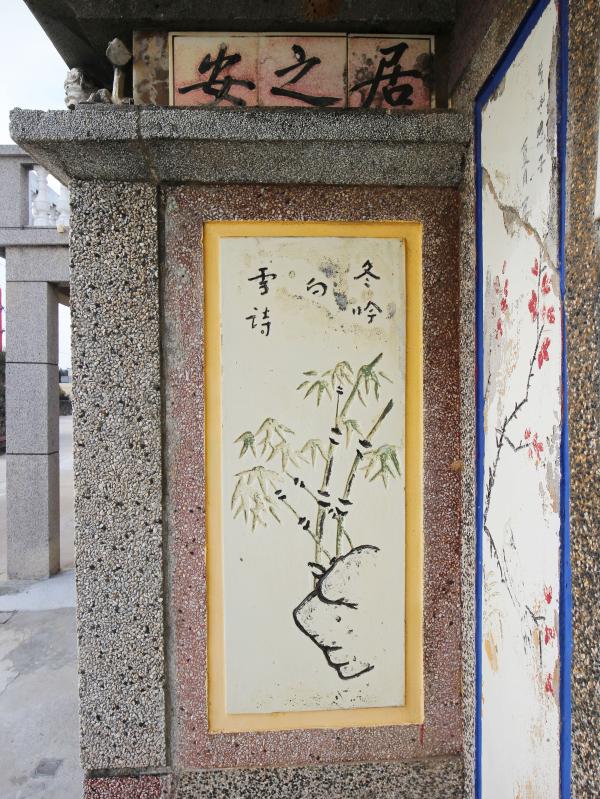 居之安
冬吟
白
雪詩